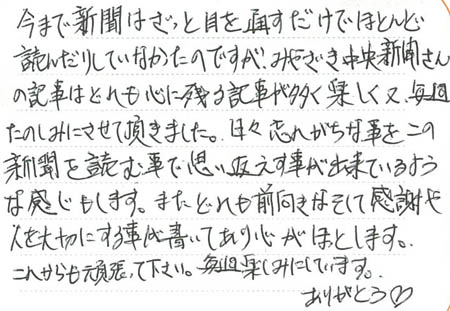 今まで新聞はざっと目を通すだけでほとんど
読んだりしていなかったのですが、みやざき中央新聞さん
の記事はどれも心に残る記事が多く楽しく又、毎週
たのしみにさせて頂きました。日々忘れがちな事をこの
新聞を読む事で思い返えす事が出来ているよう
な感じもします。またどれも前向きなそして感謝や
人を大切にする事が書いてあり心がほっとします。
これからも頑張って下さい。毎週楽しみにしています。
ありがとう♡